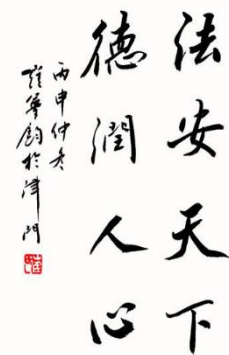 法安天下
德潤人心
丙申仲冬
崔寶鈞於津門